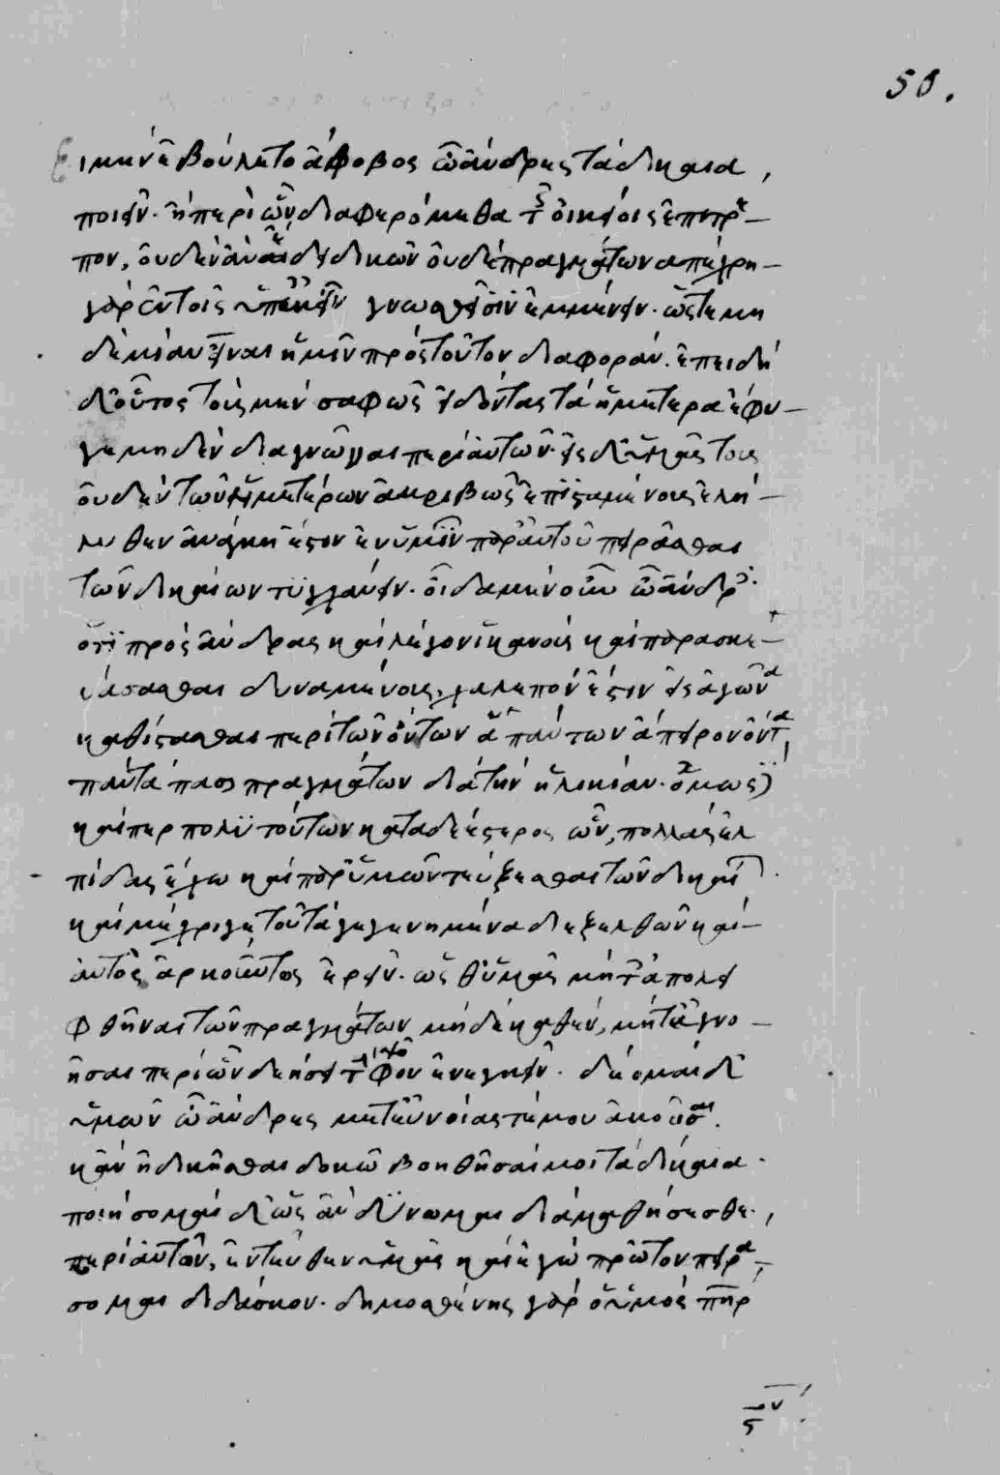 58.
Εἰ μὲν ἐβούλετο ἄφοβος ὦ ἄνδρες τὰ δίκαια,
ποιεῖν. ἢ περὶ ὧν διαφερόμεθα τοῖς οἰκείοις ἐπιτρέ-
πειν, οὐδὲν ἂν ἔδει δικῶν οὐδὲ πραγμάτων ἀπέχρη-
γὰρ ἐν τοῖς ὑπ' ἐκείνων γνωσθεῖσιν ἐμμένειν. ὥστε μη
δεμίαν εἶναι ἡμῖν πρὸς τοῦτον διαφοράν. ἐπειδὴ
δ' οὗτος τοὺς μὲν σαφῶς εἰδότας τὰ ἡμέτερα ἔφυ-
γε μηδὲν διαγνῶναι περὶ αὐτῶν. εἰς δ' ὑμᾶς τοὺς
οὐδὲν τῶν ἡμετέρων ἀκριβῶς ἐπισταμένους ἐλή-
λυθεν ἀνάγκη ἐστὶν ἐν ὑμῖν παρ' αὐτοῦ πειρᾶσθαι
τῶν δικαίων τυγχάνειν. οἶδα μὲν οὖν ὦ ἄνδρες
ὅτι πρὸς ἄνδρας καὶ λέγειν ἱκανοὺς καὶ παρασκευ-
άσασθαι δυναμένους, χαλεπόν ἐστιν εἰς ἀγῶνα
καθίστασθαι περὶ τῶν ὄντων ἁπάντων ἄπειρον ὄντα
παντάπασι πραγμάτων διὰ τὴν ἡλικίαν. ὅμως δὲ
καίπερ πολὺ τούτων καταδεέστερος ὢν, πολλὰς ἐλ
πίδας ἔχω καὶ παρ' ὑμῶν τεύξεσθαι τῶν δικαίων.
καὶ μέχρι γε τοῦ τὰ γεγενημένα διεξελθεῖν καὶ-
αὐτὸς ἀρκούντως ἐρεῖν. ὥσθ' ὑμᾶς μήτ' ἀπολει
φθῆναι τῶν πραγμάτων μηδὲ καθέν, μήτ' ἀγνο-
ῆσαι περὶ ὧν δεήσει τὴν ψῆφον ἐνεγκεῖν. δέομαι δ'
ὑμῶν ὦ ἄνδρες μετ' εὐνοίας τέ μου ἀκοῦσαι.
κἂν ἠδικῆσθαι δοκῶ βοηθῆσαί μοι τὰ δίκαια.
ποιήσομαι δ' ὡς ἂν δύνωμαι διὰ
περὶ αὐτῶν, ἐντεῦθεν ὑμᾶς καὶ ἐγὼ πρῶτον πειρά-
σομαι διδάσκειν. δημοσθένης γὰρ οὑμὸς πατὴρ